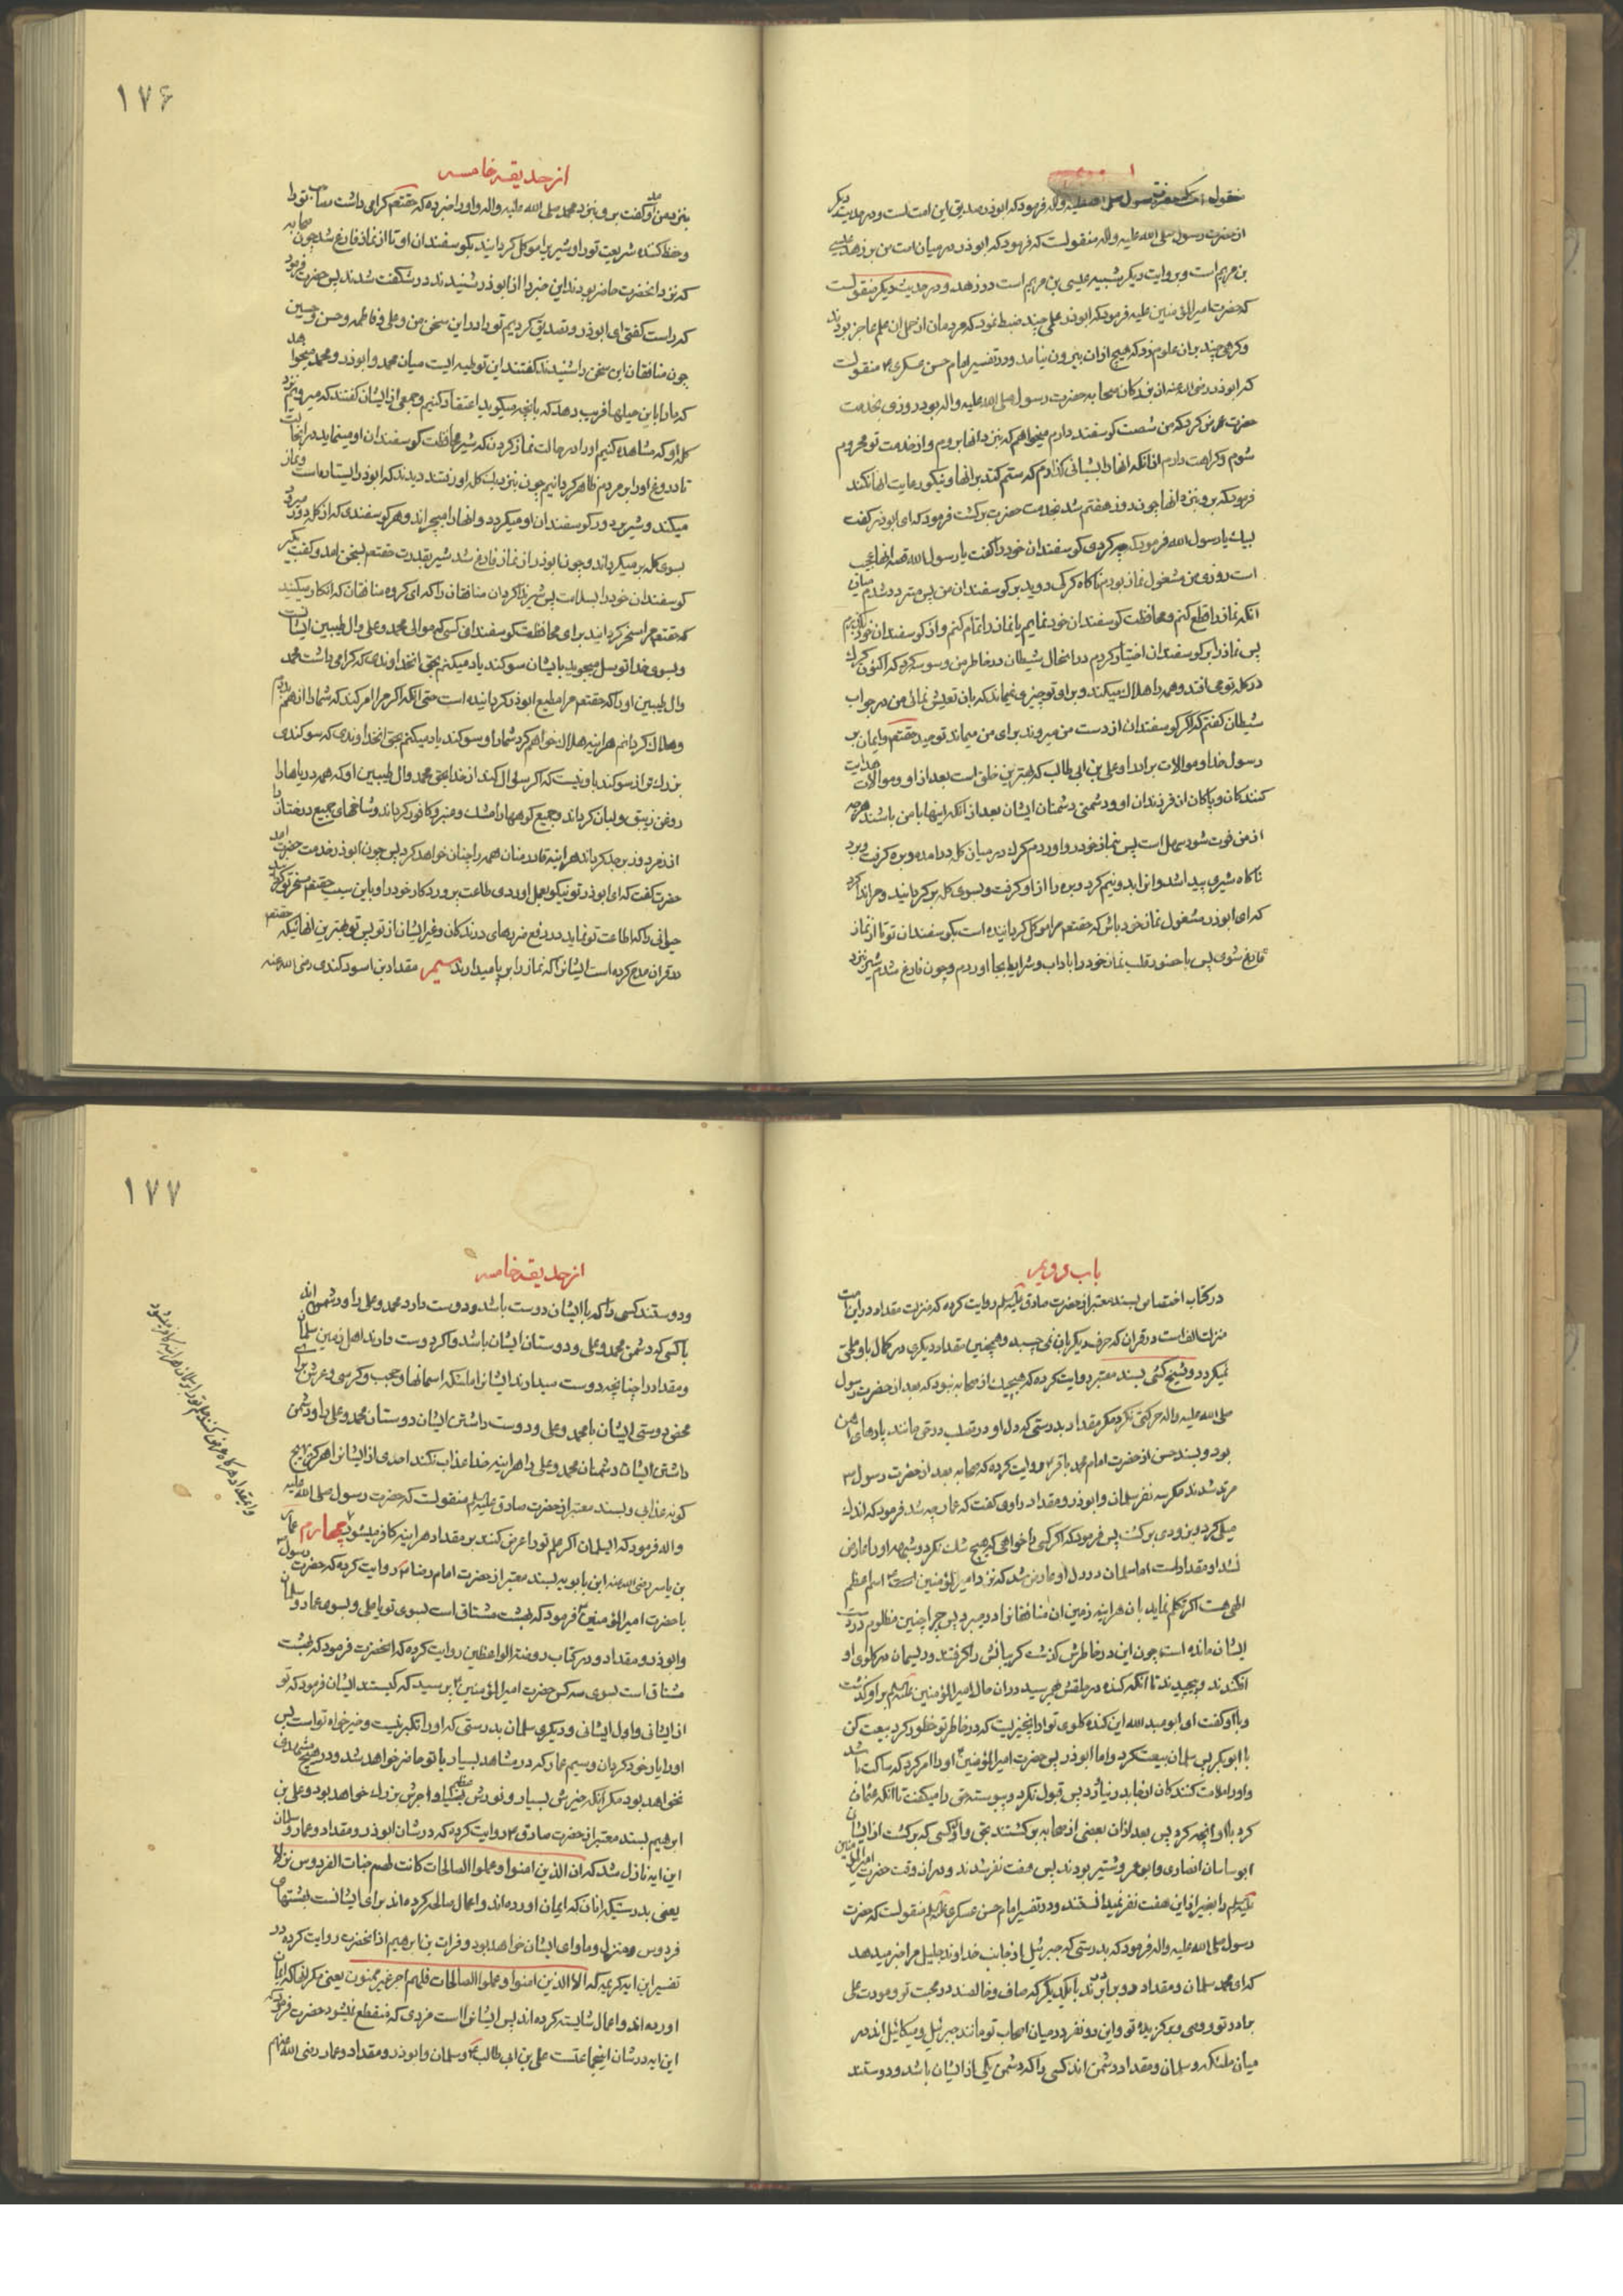 منقولست که حضرت رسول صلی الله علیه واله فرمود که ابوذر صدیق این امت است و در حدیث دیکر
از حضرت رسول صلی الله علیه واله منقولست که فرمود که ابوذر در میان امت من بر زهد عیسی
بن مریم است و بروایت دیکر شبیه عیسی بن مریم است در زهد و در حدیث دیکر منقولست
که حضرت امیر المؤمنین علیه فرمود که ابوذر علمی چند ضبط نمود که مردمان از حمل ان علم عاجز بودند
و کرهی چند بر ان علوم زد که هیچ از ان بیرون نیامد و در تفسیر امام حسن عسکری ع منقولست
که ابوذر رضی الله عنه از نزدکان صحابه حضرت رسول صلی الله علیه واله بود روزی بخدمت
حضرت عرض کرد که من شصت کوسفند دارم میخواهم که نزد انها بروم و از خدمت تو محروم
شوم و کراهت دارم از انکه انها را بشبانی کذارم که ستم کند بر انها و نیکو رعایت انها نکند
فرمود که برو نزد انها چون روز هفتم شد بخدمت حضرت برکشت فرمود که ای ابوذر کفت
لبیک یا رسول الله فرمود که چه کردی کوسفندان خود را کفت یا رسول الله قصه انها عجیب
است روزی من مشغول نماز بودم ناکاه کرکی دوید بر کوسفندان من پس متردد شدم میان
انکه نماز را قطع کنم و محافظت کوسفندان خود نمایم یا نماز را تمام کنم و از کوسفندان خود بکذرم
پس نماز را بر کوسفندان اختیار کردم در انحال شیطان در خاطر من وسوسه کرد که اکنون کرک
در کله تو می افتد و همه را هلاک میکند و برای تو چیزی نمیماند که بان تعیش نمائی من در جواب
شیطان کفتم که اکر کوسفندان از دست من میروند برای من میماند توحید حقتعم و ایمان بر
رسول خدا و موالات برادر او علی بن ابی طالب که بهترین خلق است بعد از او و موالات هدایت
کنندکان و پاکان از فرزندان او و دشمنی دشمنان ایشان بعد از انکه اینها با من باشند هر چه
از من فوت شود سهل است پس نماز خود رو اوردم کرک در میان کله در امد و بره کرفت و برد
ناکاه شیری پیدا شد و انرا بدو نیم کرد و بره را از او کرفت و بسوی کله بر کردانید و مرا ندا کرد
که ای ابوذر مشغول نماز خود باش که حقتعم مرا موکل کردانیده است بکوسفندان تو تا از نماز
فارغ شوی پس با حضور قلب نماز خود را با اداب و شرایط بجا اوردم و چون فارغ شدم شیر نزد
۱۷۶
از حدیقه خامسه
بنزد من امد و کفت برو بنزد محمد صلی الله علیه واله و او را خبر ده که حقتعم کرامی داشت مصاحب تو را
و حفظ کننده شریعت تو را و شیر برا موکل کردانید بکوسفندان او تا از نماز فارغ شد چون صحابه
که نزد انحضرت حاضر بودند این خبر را از ابوذر شنیدند در شکفت شدند پس حضرت فرمود
که راست کفتی ای ابوذر و تصدیق کردیم تو را در این سخن من و علی و فاطمه و حسن و حسین
چون منافقان این سخن را شنیدند کفتند این توطیه ایست میان محمد و ابوذر و محمد میخواهد
که ما را باین حیلها فریب دهد که بانچه میکوید اعتقاد کنیم و جمعی از ایشان کفتند که میرویم نزد
کله او که مشاهده کنیم او را در حالت نماز کردن که شیر محافظت کوسفندان او مینماید در انحالت
تا دروغ او را بر مردم ظاهر کردانیم چون بنزدیک کله او رفتند دیدند که ابوذر ایستاده است و نماز
میکند و شیر بر دور کوسفندان او میکردد و انها را میچراند و هر کوسفندی که از کله دور میرود
بسوی کله بر میکرداند و چون ابوذر از نماز فارغ شد شیر بقدرت حقتعم بسخن امد و کفت بکیر
کوسفندان خود را بسلامت پس شیر ندا کرد ان منافقان را که ای کروه منافقان که انکار میکنید
که حقتعم مرا مسخر کردانید برای محافظت کوسفندان کسی که موالی محمد و علی و ال طیبین ایشانست
و بسوی خدا توسل میجوید بایشان سوکند یاد میکنم بحق انخداوندی که کرامی داشت محمد
و ال طیبین او را که حقتعم مرا مطیع ابوذر کردانیده است حتی انکه اکر مرا امر کند که شما را از هم بدرم
و هلاک کردانم هر اینه هلاک خواهم کرد شما را و سوکند یاد میکنم بحق انخداوندی که سوکندی
بزرک تر از سوکند باو نیست که اکر سؤال کند از خدا بحق محمد و ال طیبین او که همه دریاها را
روغن زنبق و لبان کرداند و جمیع کوهها را مشک و عنبر و کافور کرداند و شاخهای جمیع درختان را
از زمرد و زبرجد کرداند هر اینه قادر منان همه را چنان خواهد کرد پس چون ابوذر خدمت حضرت امد
حضرت کفت که ای ابوذر تو نیکو بعمل اوردی طاعت پروردکار خود را و باین سبب حقتعم مسخر تو کردانید
حیوانی را که اطاعت تو نماید در دفع ضررهای درندکان و غیر ایشان از تو پس تو بهترین انهائیکه حقتعم
در قران مدح کرده است ایشانرا که نماز را بر پا میدارند سیم مقداد بن اسود کندی رضی الله عنه
باب دویم
در کتاب اختصاص بسند معتبر از حضرت صادق علیه السلم روایت کرده که منزلت مقداد در این امت
منزلت الف است در قران که حرف دیکر بان نمی چسبد و همچنین مقداد دیکری در کمال باو ملحق
نمیکردد و شیخ کشی بسند معتبر روایت کرده که هیچیک از صحابه نبود که بعد از حضرت رسول
صلی الله علیه واله حرکتی نکرد مکر مقداد بدرستی که دل او در تصلب در حق مانند پارهای اهن
بود و بسند حسن از حضرت امام محمد باقر ع روایت کرده که صحابه بعد از حضرت رسول ص
مرتد شدند مکر سه نفر سلمان و ابوذر و مقداد راوی کفت که عمار چه شد فرمود که اندک
میلی کرد و بزودی برکشت پس فرمود که اکر کسی را خواهی که هیچ شک نکرد و شبهه او را عارض
نشد او مقداد است اما سلمان در دل او عارض شد که نزد امیر المؤمنین اسم اعظم
الهی هست اکر تکلم نماید بان هر اینه زمین ان منافقانرا در میبرد پس چرا چنین مظلوم در دست
ایشان مانده است چون این در خاطرش کذشت کریبانش را کرفتند و ریسمان در کلوی او
افکندند و پیچیدند تا انکه کنده در حلقش بهم رسید در ان حال امیر المؤمنین علیه السلم بر او کذشت
و باو کفت ای ابو عبد الله این کنده کلوی تو از انچیزیست که در خاطر تو خطور کرد بیعت کن
با ابوبکر پس سلمان بیعت کرد و اما ابوذر پس حضرت امیر المؤمنین او را امر کرد که ساکت باشد
و او را ملامت کنندکان از جا بدر نیاورد پس قبول نکرد و پیوسته حق را میکفت تا انکه عثمان
کرد باو انچه کرد پس بعد از ان بعضی از صحابه بر کشتند بحق و اول کسی که برکشت از ایشان
ابو ساسان انصاری و ابو عمره و شتیر بودند پس هفت نفر شدند و در ان وقت حضرت امیر المؤمنین
علیه السلم را بغیر از این هفت نفر نمیدانستند و در تفسیر امام حسن عسکری علیه السلم منقولست که حضرت
رسول صلی الله علیه واله فرمود که بدرستی که جبرئیل از جانب خداوند جلیل مرا خبر میدهد
که ای محمد سلمان و مقداد دو برادرند با یکدیکر که صاف و خالصند در محبت تو و مودت علی
برادر تو و وصی و برکزیده تو و این دو نفر در میان اصحاب تو مانند جبرئیل و میکائیل اند در
میان ملئکه و سلمان و مقداد دشمن اند کسی را که دشمن یکی از ایشان باشد و دوستند
۱۷۷
از حدیقه خامسه
و دوستند کسی را که با ایشان دوست باشد و دوست دارد محمد و علی را و دشمن اند
با کسی که دشمن محمد و علی و دوستان ایشان باشد و اکر دوست دارند اهل زمین سلمان
و مقداد را چنانچه دوست میدارند ایشانرا ملئکه اسمانها و حجب و کرسی و عرش برای
محض دوستی ایشان با محمد و علی و دوست داشتن ایشان دوستان محمد و علی را و دشمن
داشتن ایشان دشمنان محمد و علی را هر اینه خدا عذاب نکند احدی از ایشانرا هرکز بهیچ
کونه عذابی و بسند معتبر از حضرت صادق علیه السلم منقولست که حضرت رسول صلی الله علیه
واله فرمود که ای سلمان اکر علم تو را عرض کنند بر مقداد هر اینه کافر میشود چهارم عمار
بن یاسر رضی الله عنه ابن بابویه بسند معتبر از حضرت امام رضا ع روایت کرده که حضرت رسول
با حضرت امیر المؤمنین فرمود که بهشت مشتاق است بسوی تو یا علی و بسوی عمار و سلمان
و ابوذر و مقداد و در کتاب روضة الواعظین روایت کرده که انحضرت فرمود که بهشت
مشتاق است بسوی سه کس حضرت امیر المؤمنین ع پرسید که کیستند ایشان فرمود که تو
از ایشانی و اول ایشانی و دیکری سلمان بدرستی که او را تکبر نیست و خیر خواه تو است پس
او را یار خود کردان و سیم عمار که در مشاهد بسیار با تو حاضر خواهد شد و در هیچ مشهدی
نخواهد بود مکر انکه خیرش بسیار و نورش عظیم و اجرش بزرک خواهد بود و علی بن
ابرهیم بسند معتبر از حضرت صادق ع روایت کرده که در شان ابوذر و مقداد و عمار و سلمان
این ایه نازل شد که ان الذین امنوا وعملوا الصالحات کانت لهم جنات الفردوس نزلا
یعنی بدرستیکه انان که ایمان اورده اند و اعمال صالحه کرده اند برای ایشانست بهشتهای
فردوس و منزل و ماوای ایشان خواهد بود و فرات بن ابرهیم از انحضرت روایت کرده در
تفسیر این ایه کریمه که الا الذین امنوا وعملوا الصالحات فلهم اجر غیر ممنون یعنی مکر انها که ایمان
اورده اند و اعمال شایسته کرده اند پس ایشانرا است مزدی که منقطع نمیشود حضرت فرمود که
این ایه در شان این جماعتست علی بن ابی طالب ع و سلمان و ابوذر و مقداد و عمار رضی الله عنهم